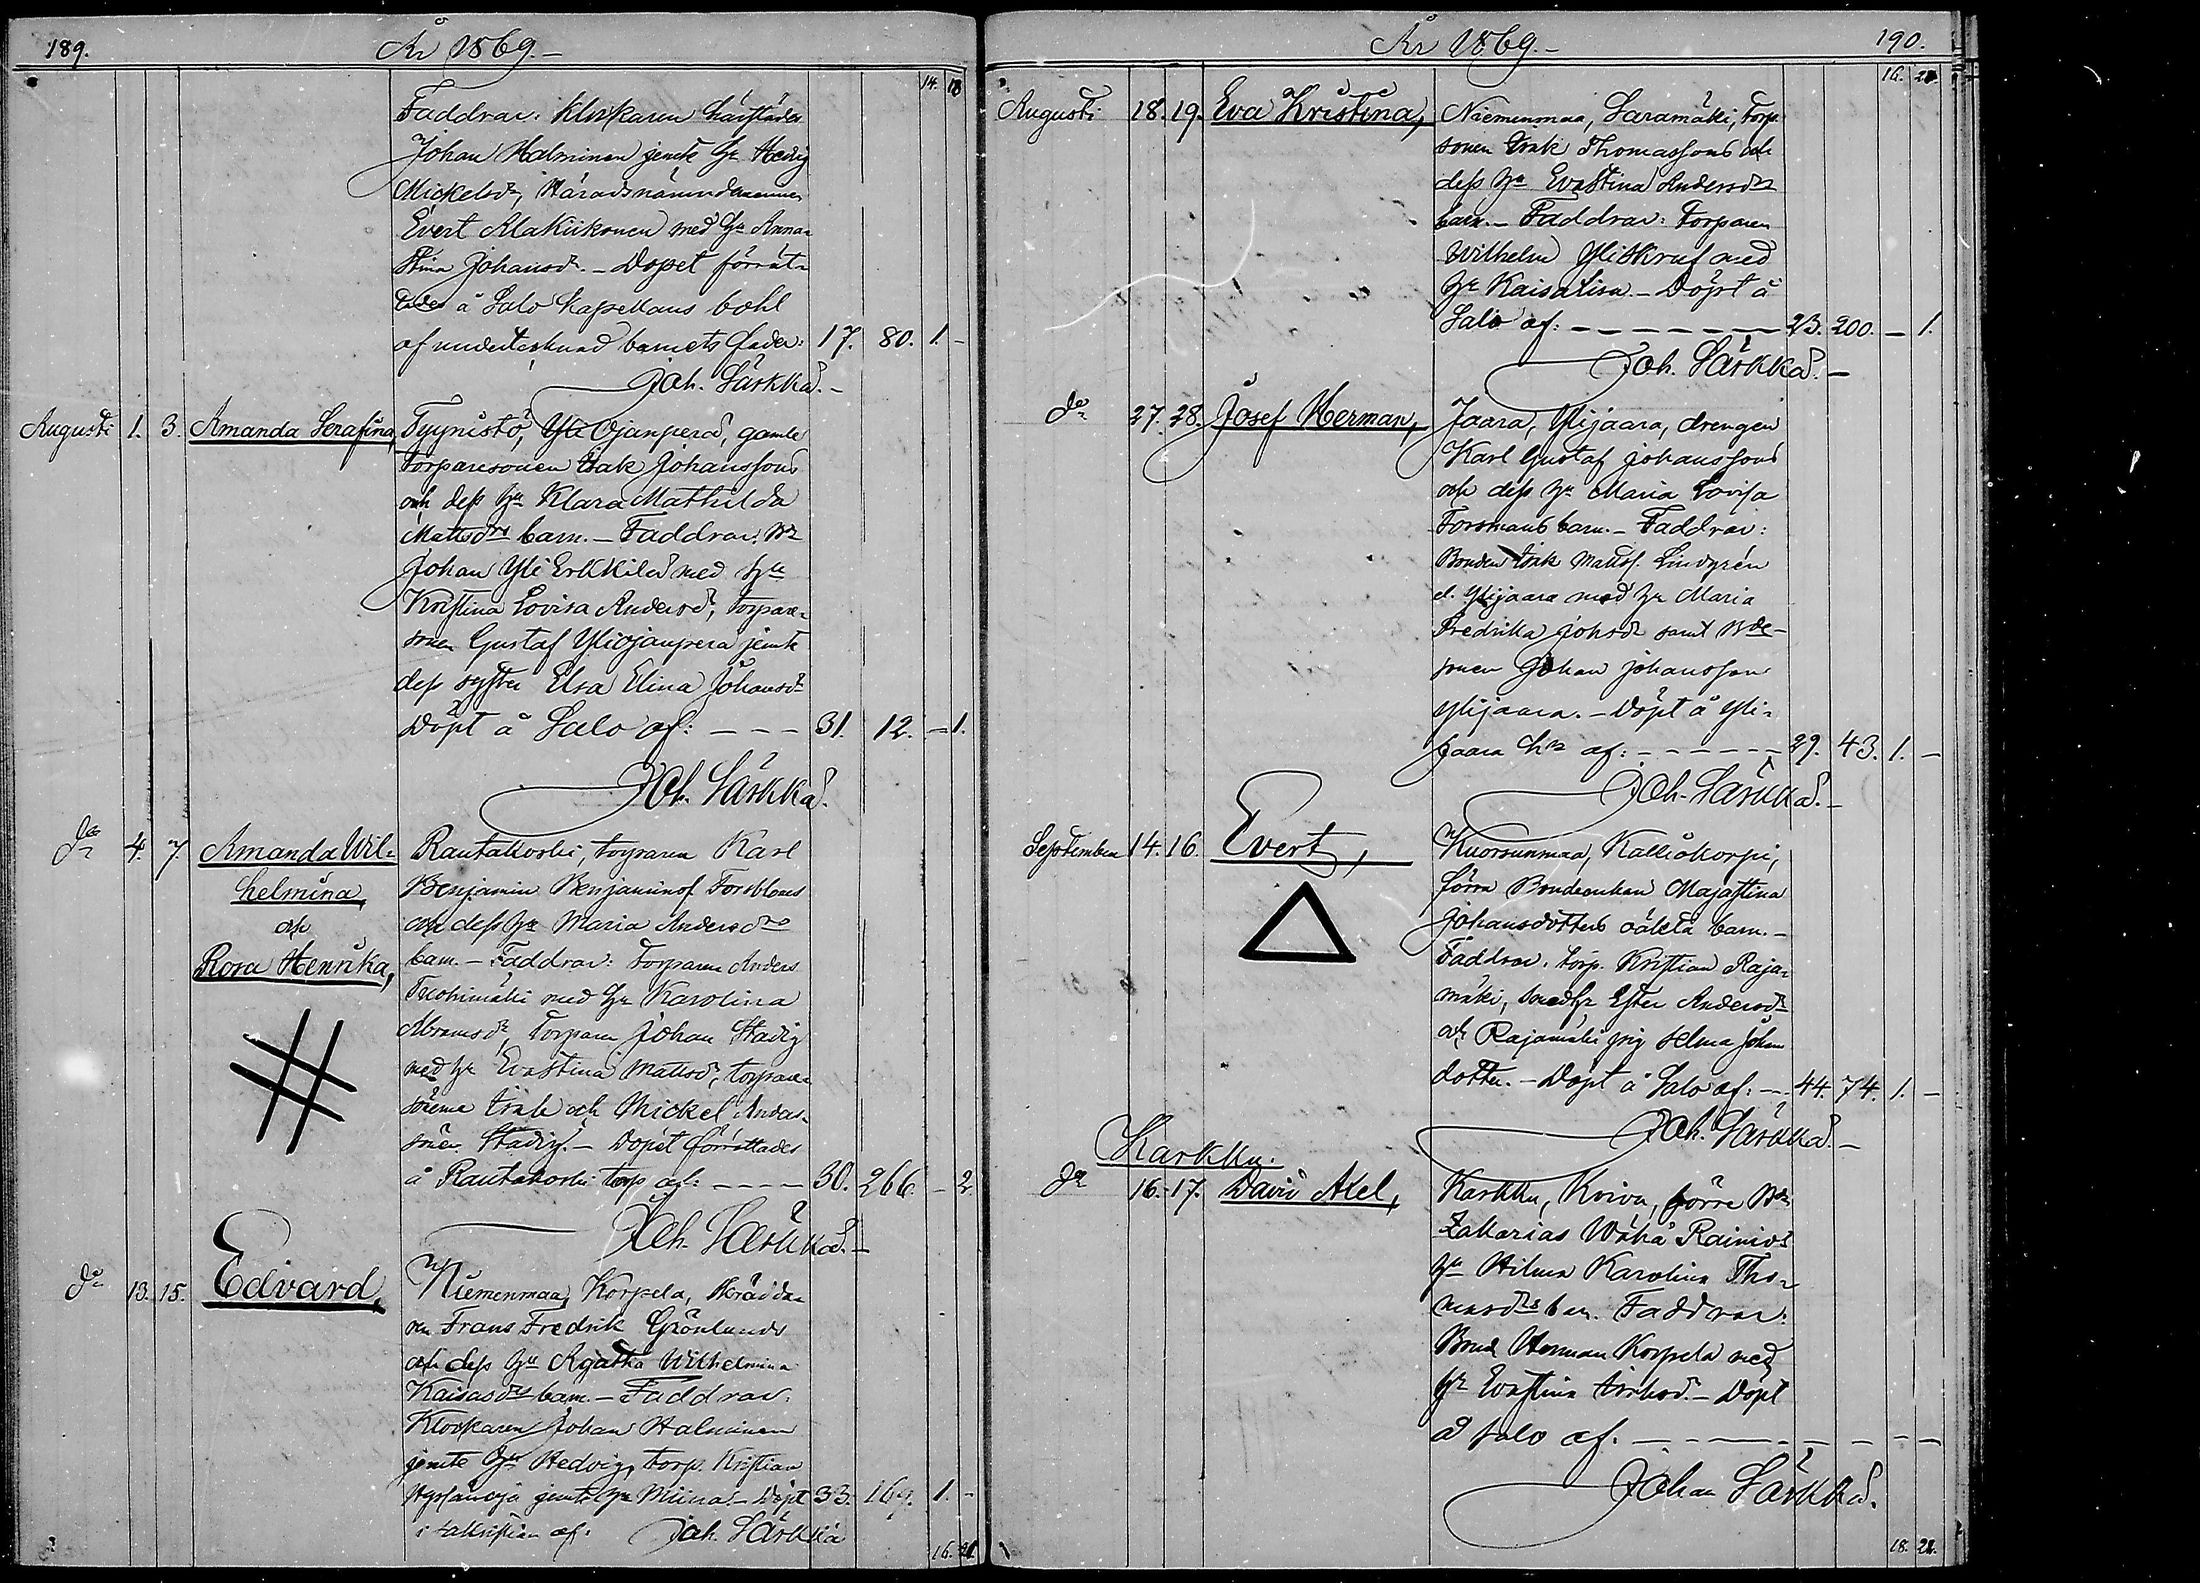 189.
År 1869.-
14. 18
Faddrar: Klockaren härstädes
Johan Halminen jemte hu Hedvig
Mickelsdr, Häradsnämndemannen
Evert Alakiikonen med hu Anna
Stina Johansdr. - Dopet förrät-
tades å Salo Kapellans bohl
af undertecknad barnets fader: 17. 80. 1. -
Joh. Särkkä. -
Augusti 1. 3. Amanda Serafina, Tyynistö, Yli Ojanperä, gamle
torparesonen Isak Johanssons
och dess hu Klara Mathilda
Mattsdrs barn. - Faddrar: Bn
Johan Yli Erkkilä med hu
Kristina Lovisa Andersdr, torpare-
sonen Gustaf Yliojanperä jemte
dess syster Elsa Elina Johansdr
Döpt å Salo af: - - - 31. 12. - 1.
Joh. Särkkä.
do 4. 7. Amanda Wil- Rautakoski, torparen Karl
helmina, Benjamin Benjaminss. Forsbloms
och och dess hu Maria Andersdrs
Rosa Henrika, barn. - Faddrar: Torparen Anders
med hu Karolina
Abramsdr, Torparen Johan Stadig
med hu Evastina Mattsdr, torpare-
sönerna Isak och Mickel Anders-
söner Stadig. - Dopet förrättades
å Rautakoski torp af: - - - - 30. 266. - 2
Joh. Särkkä. -
do 13. 15. Edvard, Niemenmaa, Korpela, Skrädda-
ren Frans Fredrik Grönlunds
och dess hu Agatha Wilhelmina
Kaisasdrs barn. - Faddrar.
Klockaren Johan Halminen
jemte hu Hedvig, torp. Kristian
jemte hu Miina. - Döpt 33. 169. 1. -
i sakristian af: Joh. Särkkä
16. 21
År 1869.-
190.
16. 21
Augusti 18. 19. Eva Kristina, Niemenmaa, Saramäki, Torp-
sonen Isak Thomassons och
dess hu Evastina Andersdrs
barn. - Faddrar: Torparen
Wilhelm Yliskruf med
hu Kaisa Lisa. - Döpt å
Salo af: - - - - - - - 23. 200. - 1.
Joh. Särkkä. -
do 27. 28. Josef Herman, Jaara, Ylijaara, drengen
Karl Gustaf Johanssons
och dess hu Maria Lovisa
Forsmans barn. - Faddrar:
Bonden Isak Mattss. Lindgrén
el. Ylijaara med hu Maria
Fredrika Johsdr samt Bde-
sonen Johan Johansson
Ylijaara. - Döpt å Yli-
jaara hn af: - - - - - - 29. 43. 1. -
Joh. Särkkä. -
September 14. 16. Evert, Kuorsunmaa, Kalliokorpi,
förra Bondeenkan Majastina
Johansdotters oäkta barn. -
Faddrar. torp. Kristian Raja-
mäki, smedhu Ester Andersdr
och Rajamäki pig Selma Johans
dotter. - Döpt å Salo af: - - 44. 74. 1. -
Joh. Särkkä. -
Karkku.
do 16. 17. David Axel, Karkku, Koivu, förre Bn
Zakarias Wähä Rainios
hu Hilma Karolina Tho-
masdrs barn. Faddrar:
Bond Herman Korpela med
hu Evastina Isaksdr. - Döpt
å Salo af. - - - - - - - - - -
Johan Särkkä.
18. 22.